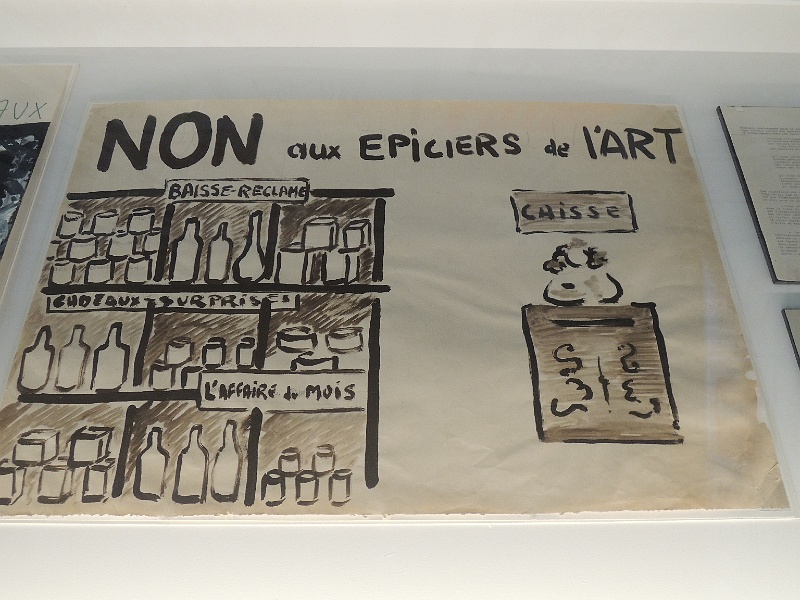 AUX
NON aux EPiCiERS de l'ART
BAISSE-RECLAME
CAiSSE
CADEAUX-SURPRISES
L'AFFAiRE du MOIS